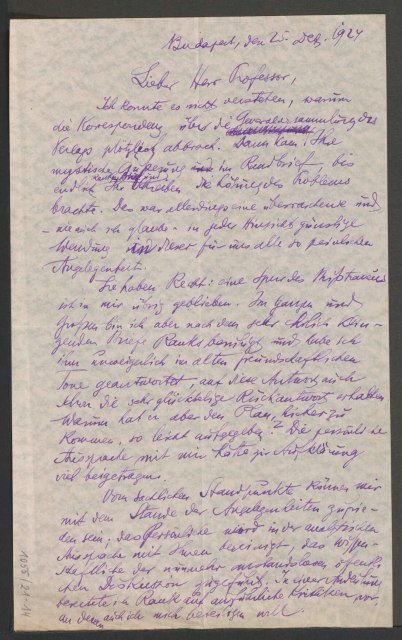 Budapest, den 25. Dez. 1924
Lieber Herr Professor,
Ich konnte es nicht verstehen, warum
die Korrespondenz über die Generalversammlung des
Verlags plötzlich abbrach. Dann kam Ihre
mystische Äußerung im Rundbrief – bis
endlich Ihr die Lösung des Problems
brachte. Das war allerdings eine überraschende und
– wie mich ich glaube – in jeder Hinsicht günstige
Wendung in dieser für uns alle so peinlichen
Angelegenheit.
Sie haben Recht: eine Spur des Mißtrauens
ist in mir übrig geblieben. Im ganzen und
Großen bin ich aber nach dem sehr ehrlich klin-
genden Briefe Ranks beruhigt und habe ich
ihm unweigerlich im alten freundschaftlichen
Tone geantwortet, auf diese Antwort auch
schon die sehr glückliche Rückantwort erhalten
Warum hat er aber den Plan, hieher zu
kommen, so leicht aufgegeben? Die persönliche
Aussprache mit mir hätte zur Aufklärung
viel beigetragen.
Vom sachlichen Standpunkte können wir
mit dem Stande der Angelegenheiten zufrie-
den sein; das Persönliche wird in der analytischen
Aussprache mit Ihnen bereinigt, das wissen-
schaftliche der nunmehr anstandslosen öffentli-
chen Diskussion zugeführt. In zwei
bereitete ich Rank auf ausführliche Kritiken vor
an denen auch ich mich beteiligen will.
1055/21-14